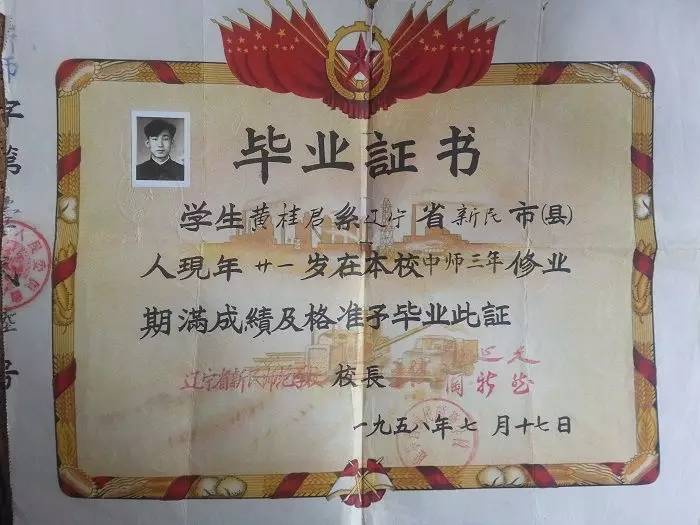 毕业証书
学生黄桂君系辽宁省新民市(县)
人現年廿一岁在本校中师三年修业
期滿成績及格准予毕业此証
辽宁省新民师范学校 校長
一九五八年七月十七日
师 字第 号